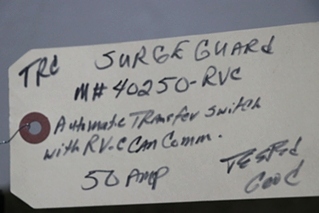 TRC SURGE GUARd
M# 40250-RVC
Automatic TRansfer Switch
with RV-C Can Comm.
50 Amp
TESTEd
GOOD